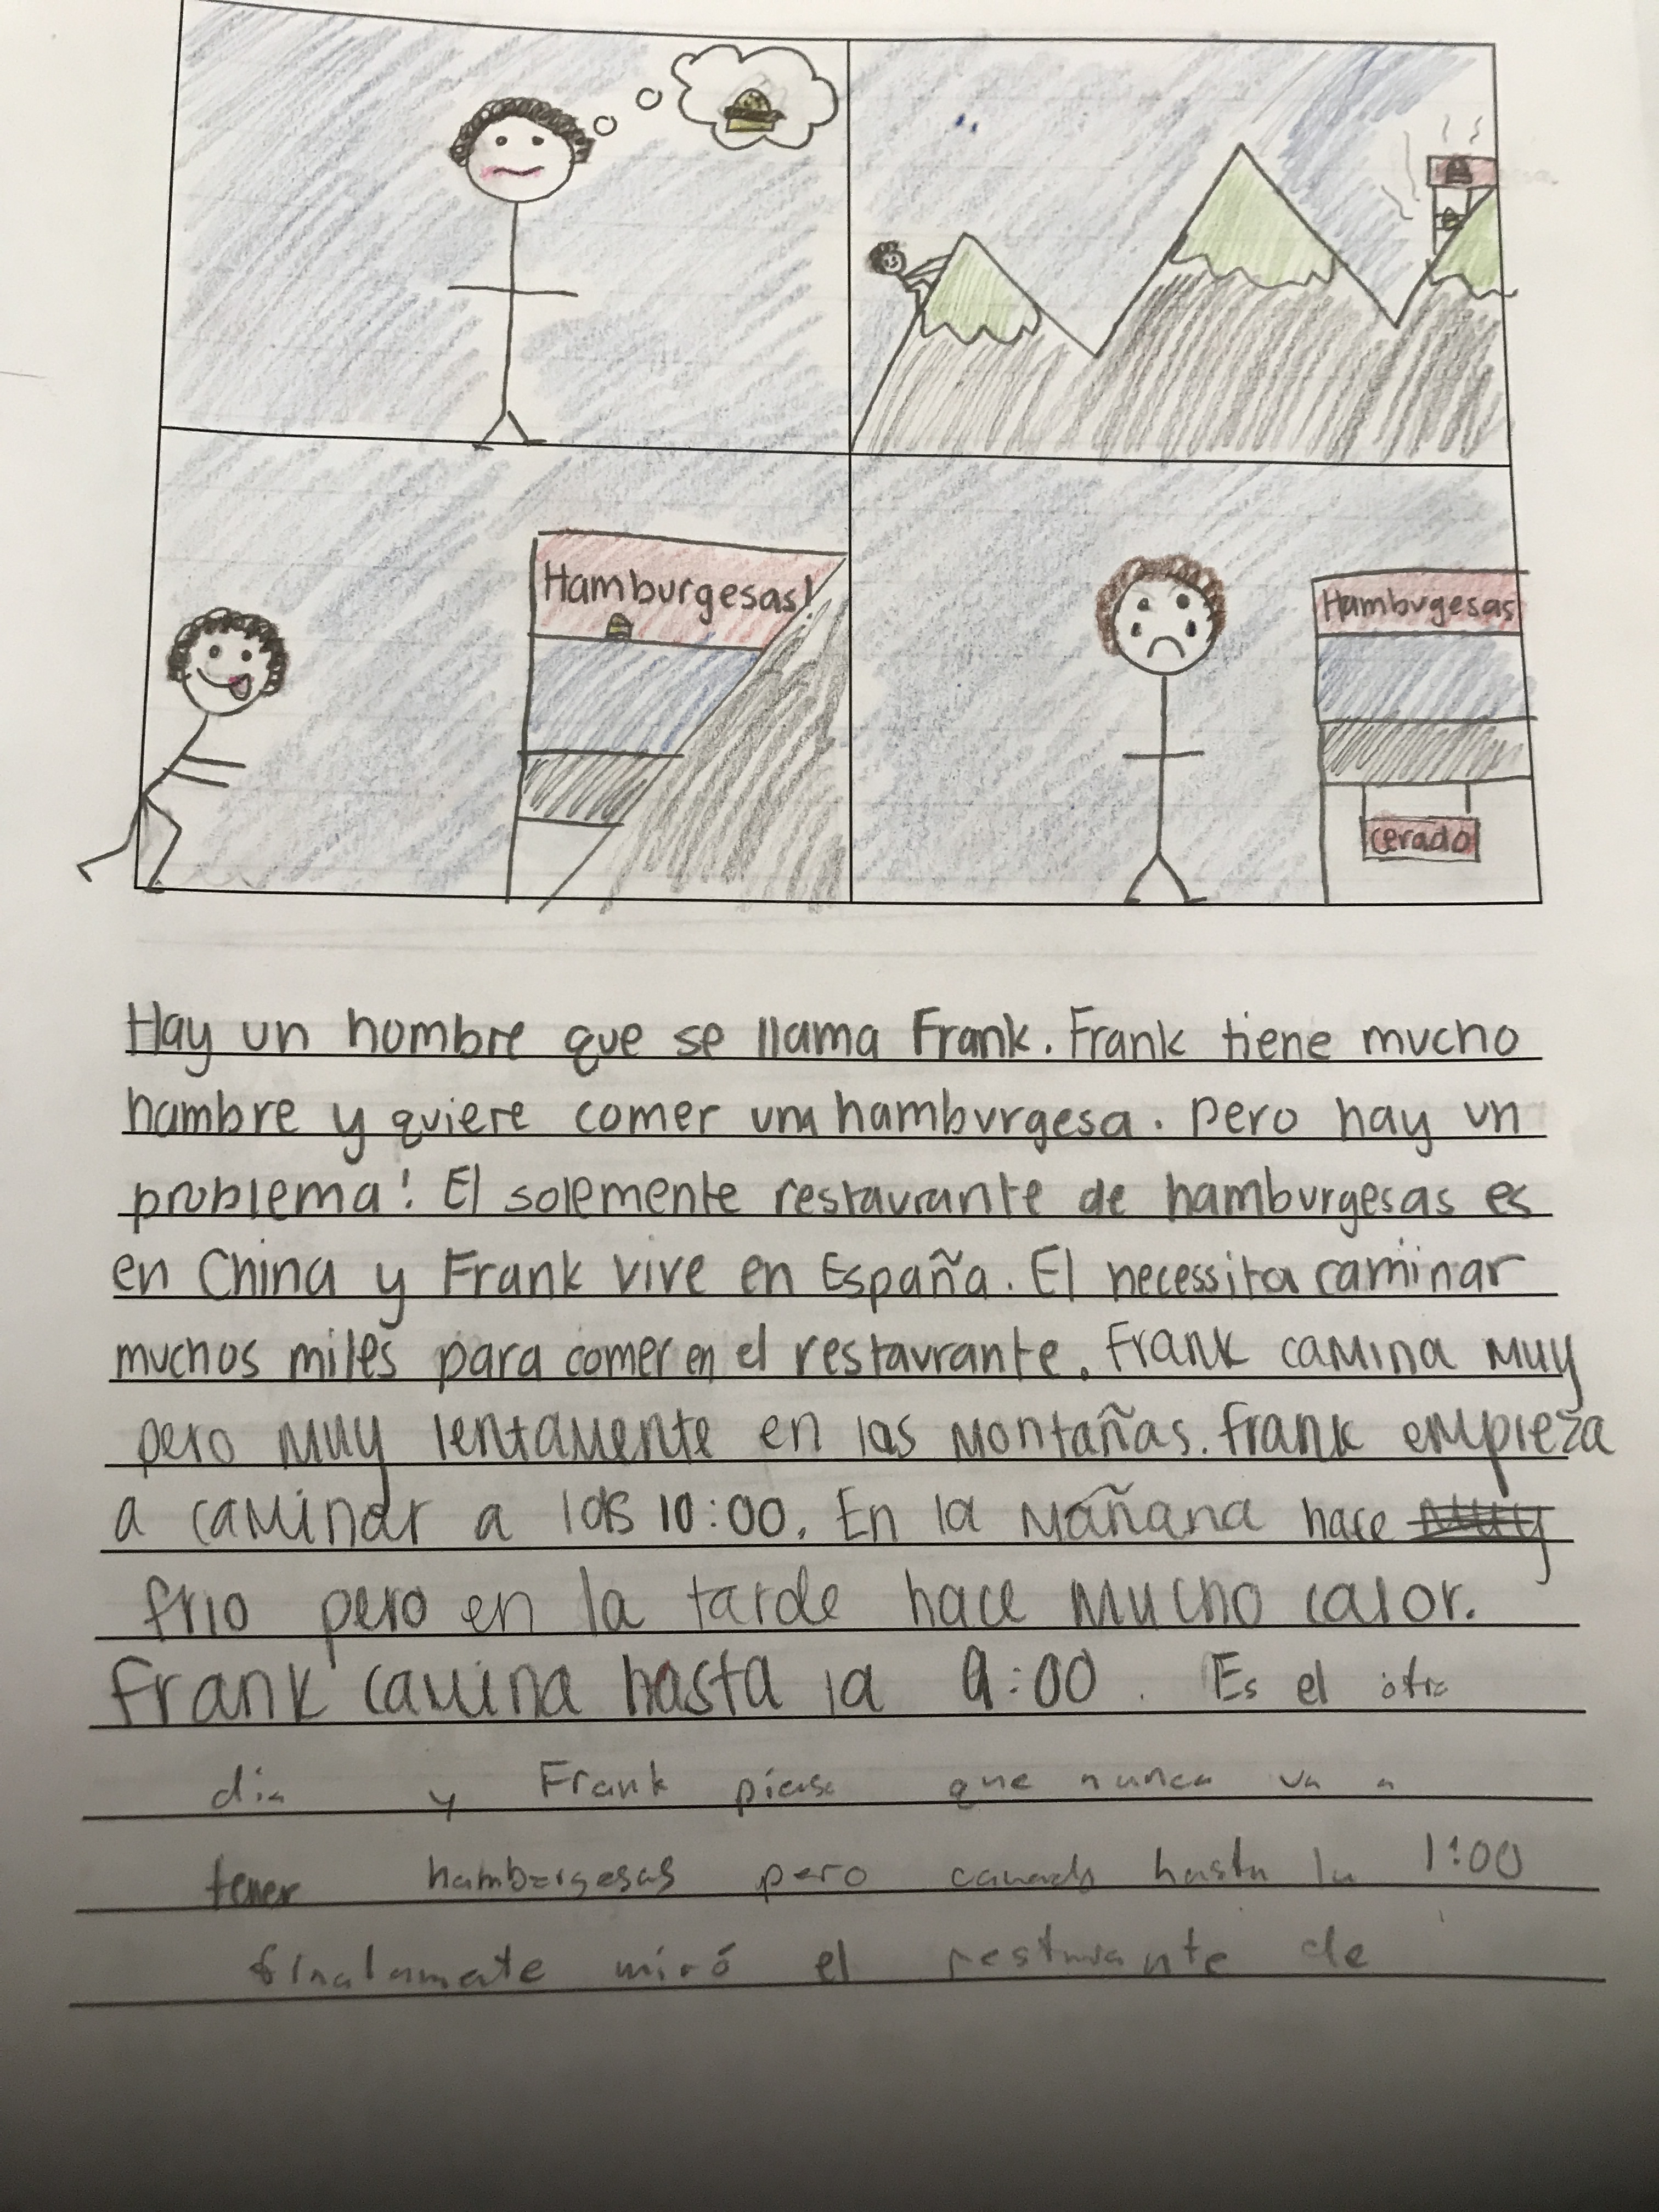 Hamburgesas!
Hambvgesas
cerado
Hay un hombre que se llama Frank. Frank tiene mucho
hambre y quiere comer una hambvrgesa. pero hay un
problema! El solemente restavrante de hamburgesas es
en China y Frank vive en España. El necessita caminar
muchos miles para comer en el restavrante. Frank camina muy
pero muy lentamente en las montañas. Frank empieza
a caminar a las 10:00. En la mañana hace muy
frio pero en la tarde hace mucho calor.
Frank camina hasta la 9:00. Es el otro
dia y Frank piensa que nunca va a
tener hamburgesas pero hasta la 1:00
finalamente miró el resturante de